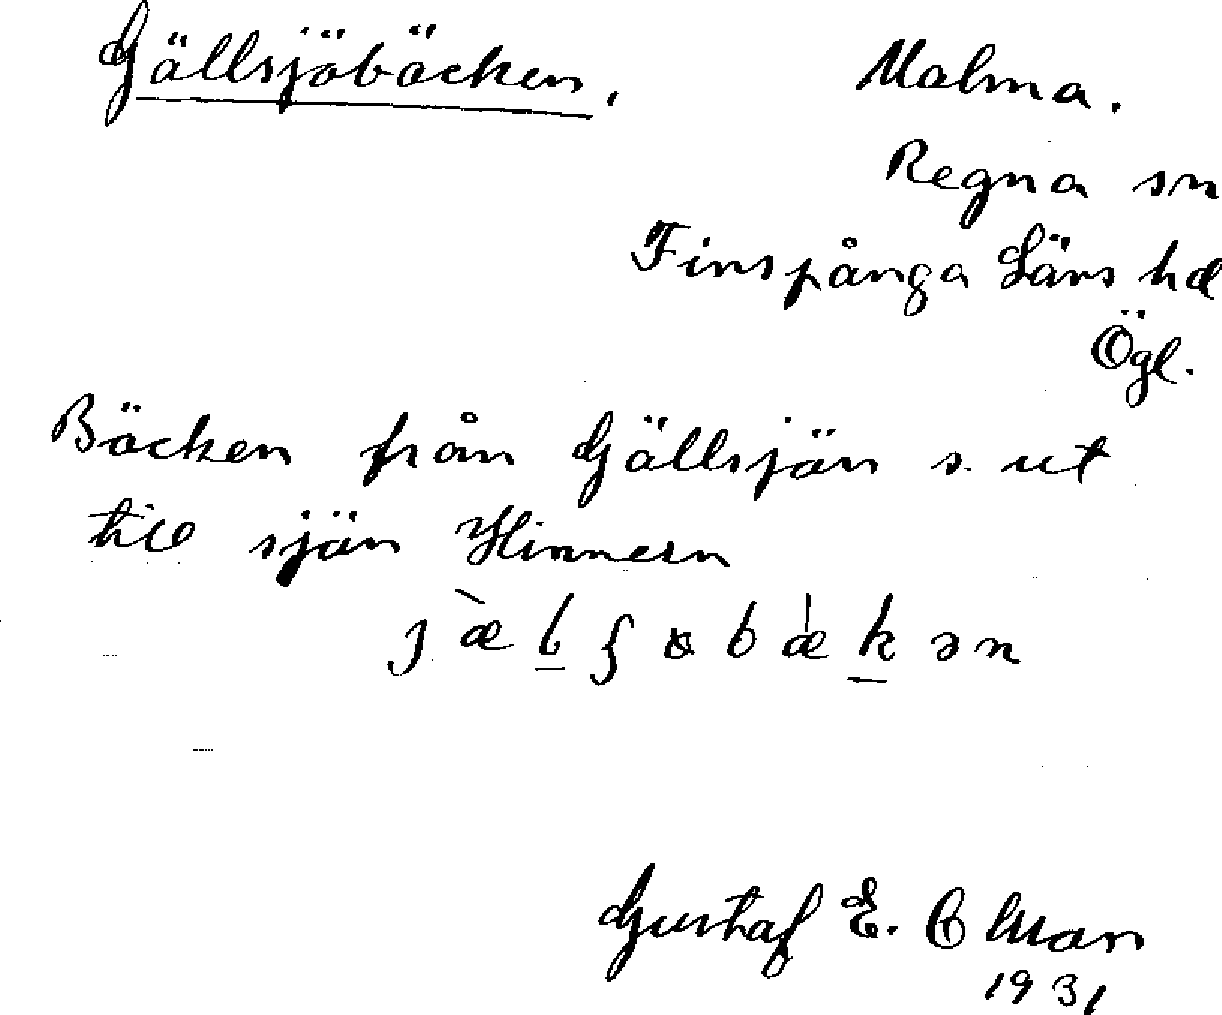 Gällsjöbäcken. Malma.
Regna sn
Finspånga Läns hd
Ögl.
Bäcken från Gällsjön s. ut
till sjön Hinnern
Gustaf E. Ollman
1931